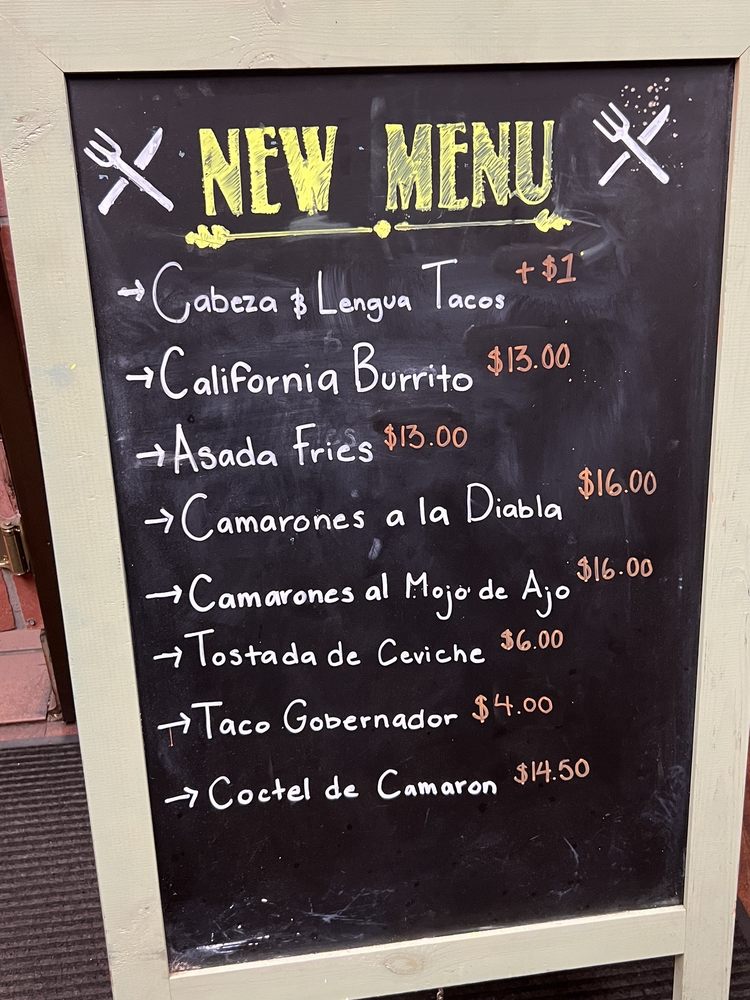 NEW MENU
→ Cabeza & Lengua Tacos +$1
→ California Burrito $13.00
→ Asada Fries $13.00
→ Camarones a la Diabla $16.00
→ Camarones al Mojo de Ajo $16.00
→ Tostada de Ceviche $6.00
→ Taco Gobernador $4.00
→ Coctel de Camaron $14.50